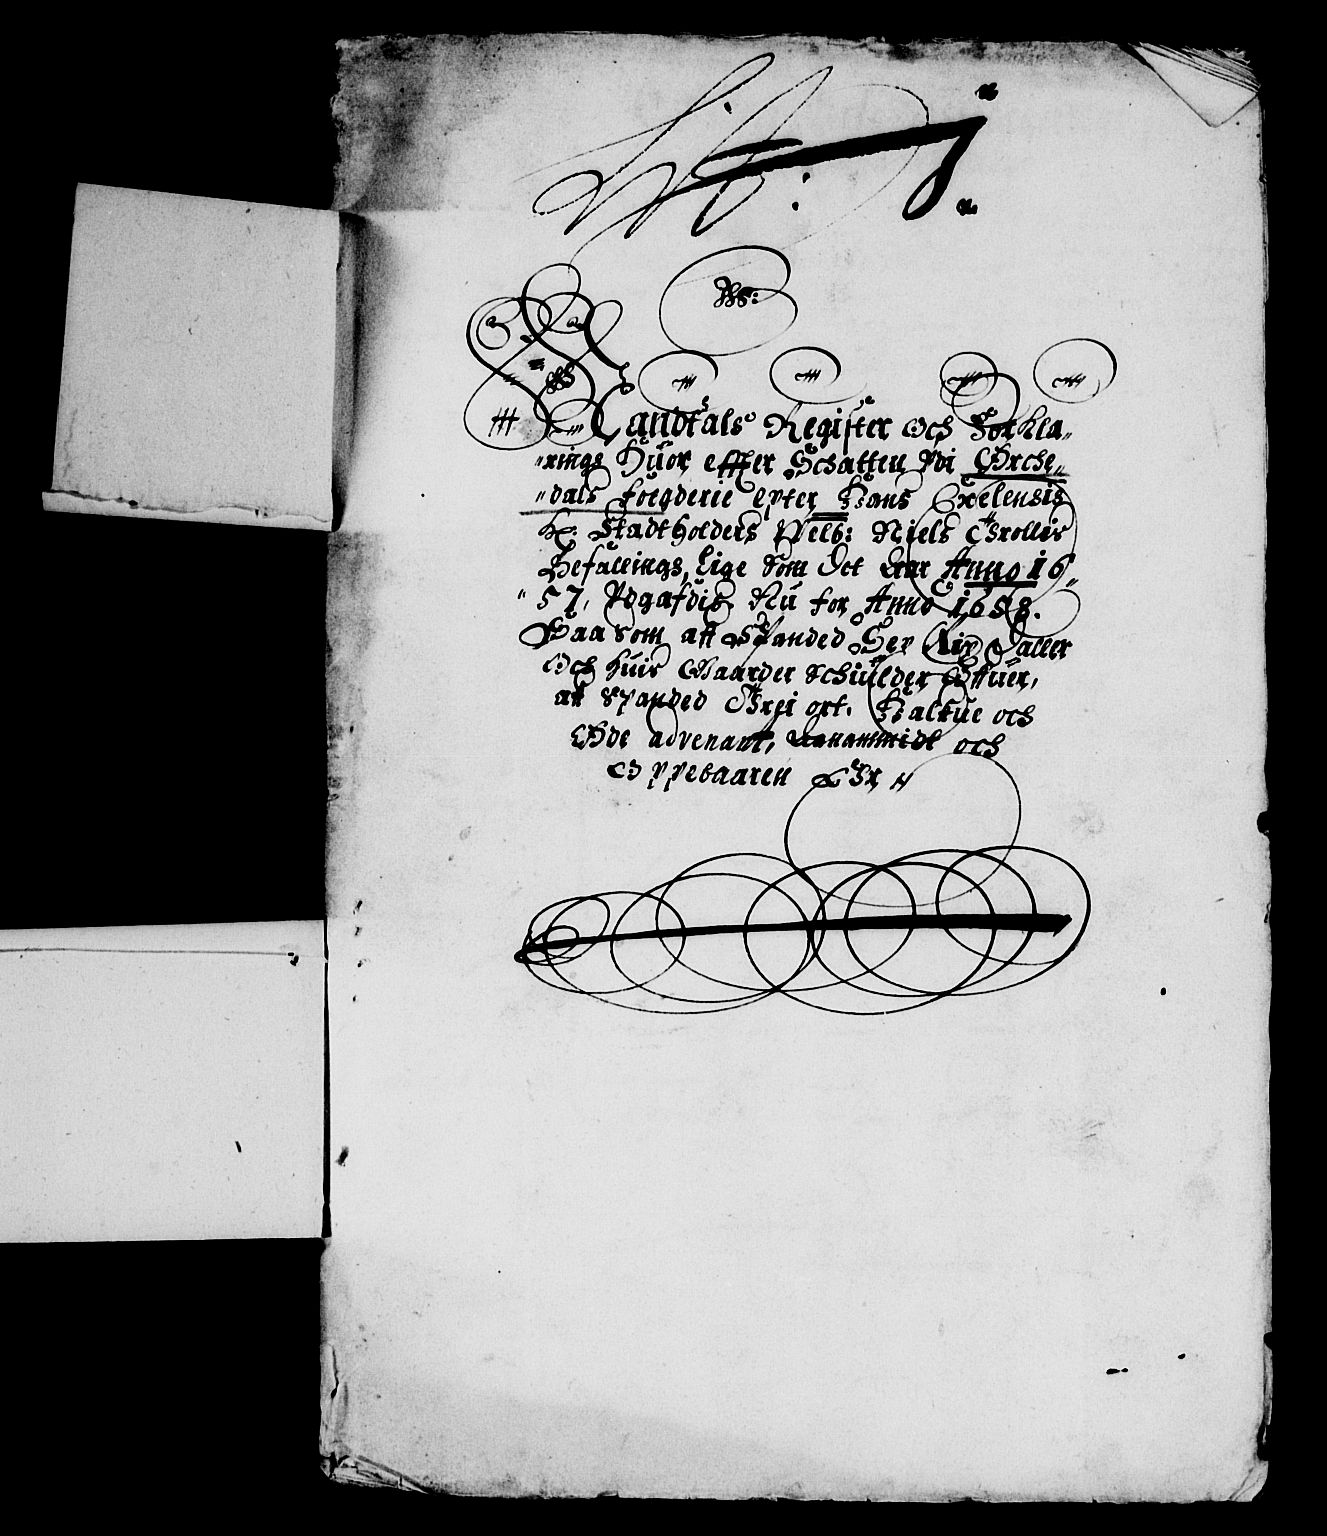 Litt: J.
No:
Mandtals Register och Forkla„
„rings Huor effter Schatten Udi Orche„
„dals foegderie epter Hans Exelensis
H: Stadtholders Velb: Niels Trollis
Befallings, lige Som det War Anno 16„
„57, Udgafdis Nu for Anno 1658.
Saa Som aff Spanded Sex Daller
och huis Gaarder Schiulder Ofuer,
aff Spanded Trei ort. Halfue och
Øde advenant, och
Oppebaaren Er